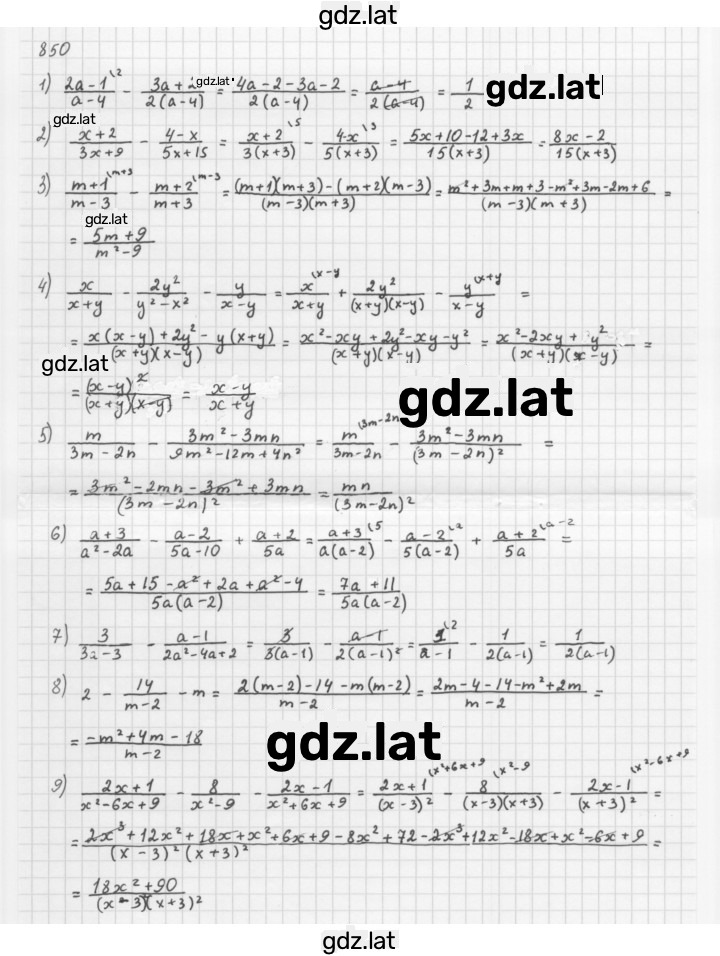 gdz.lat
850
1) \frac{2a-1^{\backslash 2}}{a-4} - \frac{3a+2}{2(a-4)} = \frac{4a-2-3a-2}{2(a-4)} = \frac{a-4}{2(a-4)} = \frac{1}{2}
gdz.lat
gdz.lat
gdz.lat
2) \frac{x+2}{3x+9} - \frac{4-x}{5x+15} = \frac{x+2^{\backslash 5}}{3(x+3)} - \frac{4-x^{\backslash 3}}{5(x+3)} = \frac{5x+10-12+3x}{15(x+3)} = \frac{8x-2}{15(x+3)}
3) \frac{m+1^{\backslash m+3}}{m-3} - \frac{m+2^{\backslash m-3}}{m+3} = \frac{(m+1)(m+3)-(m+2)(m-3)}{(m-3)(m+3)} = \frac{m^2+3m+m+3-m^2+3m-2m+6}{(m-3)(m+3)} =
gdz.lat
= \frac{5m+9}{m^2-9}
4) \frac{x}{x+y} - \frac{2y^2}{y^2-x^2} - \frac{y}{x-y} = \frac{x^{\backslash x-y}}{x+y} + \frac{2y^2}{(x+y)(x-y)} - \frac{y^{\backslash x+y}}{x-y} =
= \frac{x(x-y)+2y^2-y(x+y)}{(x+y)(x-y)} = \frac{x^2-xy+2y^2-xy-y^2}{(x+y)(x-y)} = \frac{x^2-2xy+y^2}{(x+y)(x-y)} =
gdz.lat
= \frac{(x-y)^2}{(x+y)(x-y)} = \frac{x-y}{x+y}
gdz.lat
5) \frac{m}{3m-2n} - \frac{3m^2-3mn}{9m^2-12m+4n^2} = \frac{m^{\backslash 3m-2n}}{3m-2n} - \frac{3m^2-3mn}{(3m-2n)^2} =
= \frac{3m^2-2mn-3m^2+3mn}{(3m-2n)^2} = \frac{mn}{(3m-2n)^2}
6) \frac{a+3}{a^2-2a} - \frac{a-2}{5a-10} + \frac{a+2}{5a} = \frac{a+3^{\backslash 5}}{a(a-2)} - \frac{a-2^{\backslash a}}{5(a-2)} + \frac{a+2^{\backslash a-2}}{5a} =
= \frac{5a+15-a^2+2a+a^2-4}{5a(a-2)} = \frac{7a+11}{5a(a-2)}
7) \frac{3}{3a-3} - \frac{a-1}{2a^2-4a+2} = \frac{3}{3(a-1)} - \frac{a-1}{2(a-1)^2} = \frac{1^{\backslash 2}}{a-1} - \frac{1}{2(a-1)} = \frac{1}{2(a-1)}
8) 2 - \frac{14}{m-2} - m = \frac{2(m-2)-14-m(m-2)}{m-2} = \frac{2m-4-14-m^2+2m}{m-2} =
= \frac{-m^2+4m-18}{m-2}
gdz.lat
9) \frac{2x+1}{x^2-6x+9} - \frac{8}{x^2-9} - \frac{2x-1}{x^2+6x+9} = \frac{2x+1^{\backslash x^2+6x+9}}{(x-3)^2} - \frac{8^{\backslash x^2-9}}{(x-3)(x+3)} - \frac{2x-1^{\backslash x^2-6x+9}}{(x+3)^2} =
= \frac{2x^3+12x^2+18x+x^2+6x+9-8x^2+72-2x^3+12x^2-18x+x^2-6x+9}{(x-3)^2(x+3)^2} =
= \frac{18x^2+90}{(x-3)(x+3)^2}
gdz.lat